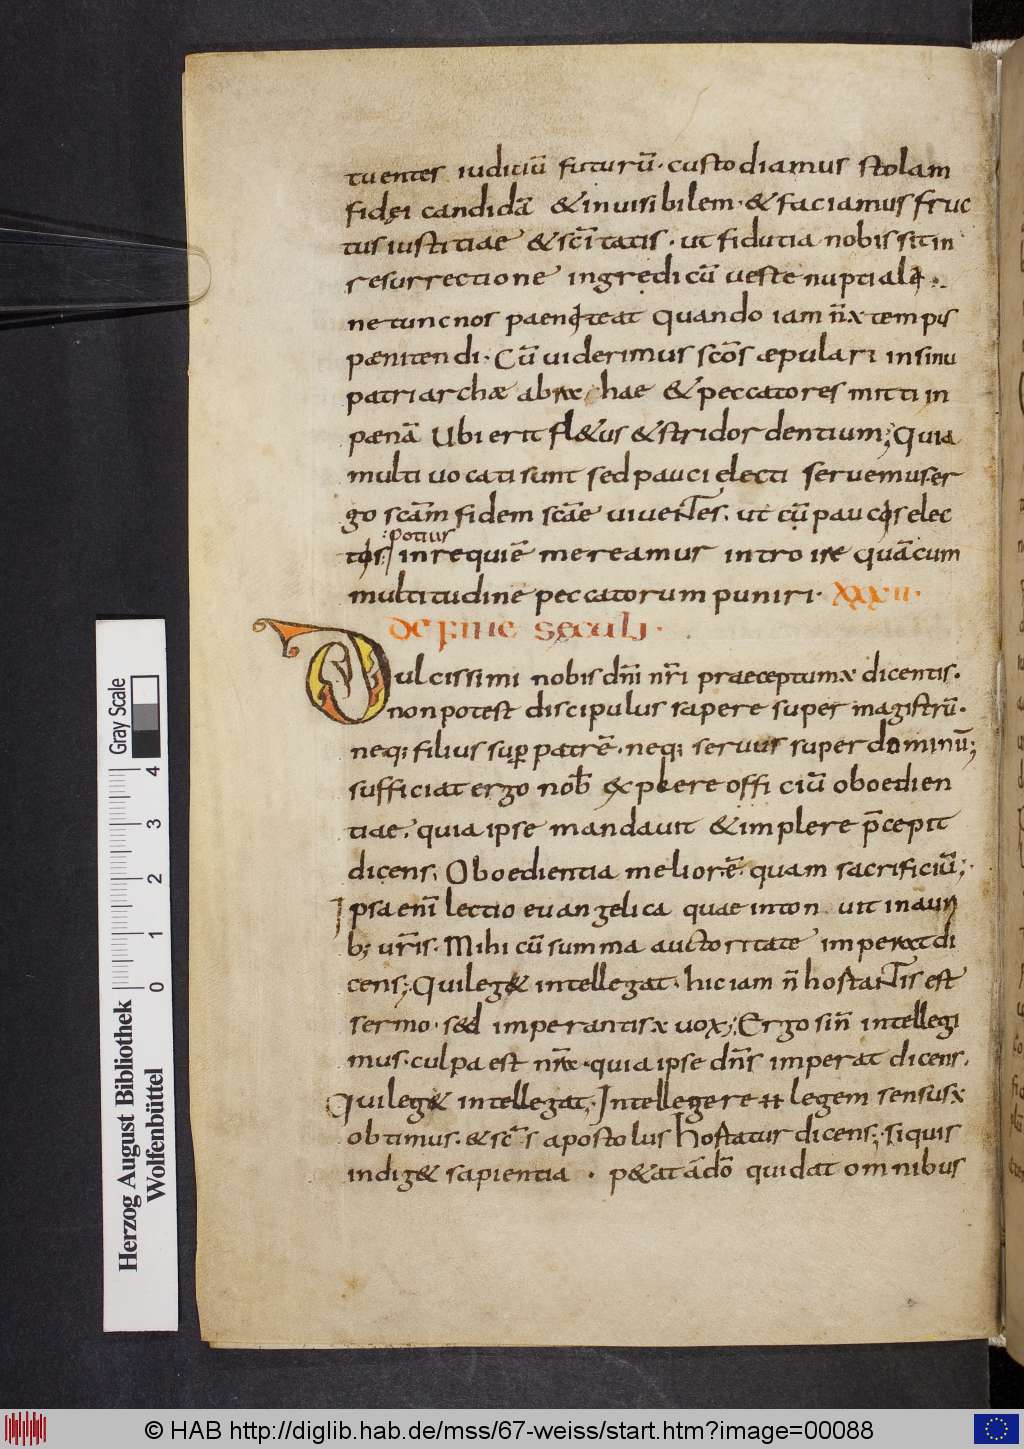 tuentes iudiciū futurū· custodiamus stolam
fidęi candidā &inuisibilem·&faciamus fruc
tus iustitiae &sc̄itatis· ut fidutia nobis sit in
resurrectione ingredi cū ueste nuptiale·
ne tunc nos paeniteat quando iam n̄ x tempus
pænitendi· Cū uiderimus scōs æpulari in sinu
patriarchæ abrachae &peccatores mitti in
pænā Ubi erit fl&us &stridor dentium; Quia
multi uocati sunt sed pauci electi seruemus er
go scām fidem scāe uiuentes. ut cū paucos elec
potius
tos in requiē mereamur introire quācum
multitudine peccatorum puniri· XXXII·
De fine sęculi·
Dulcissimi nobis dn̄i nr̄i praeceptum x dicentis·
non potest discipulus sapere super magistrū·
neq; filius sup patrē· neq; seruus super dominū;
sufficiat ergo nob̄ explere officiū oboedien
tiae. quia ipse mandauit &implere p̄cepit
dicens. Oboedientia meliorē quam sacrificiū;
Ipsa enī lectio euangelica quae inton uit in auri
b; ur̄is· Mihi cū summa auctoritate imperat di
cens; Qui leg& intellegat· hic iam n̄ hostantis est
sermo· sed imperantis x uox; Ergo si n̄ intellegi
mus· culpa est nr̄a· quia ipse dn̄s imperat dicens.
Qui leg& intellegat· Intellegere legem sensus x
obtimus· &sc̄s apostolus hostatur dicens; si quis
indig& sapientia · p&at ā dō qui dat omnibus
Herzog August Bibliothek
Wolfenbüttel
0 1 2 3 4
Gray Scale
© HAB http://diglib.hab.de/mss/67-weiss/start.htm?image=00088